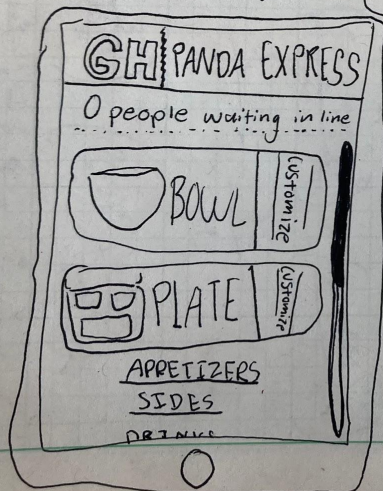 GH PANDA EXPRESS
0 people waiting in line
BOWL
Customize
PLATE
Customize
APPETIZERS
SIDES
DRINKS